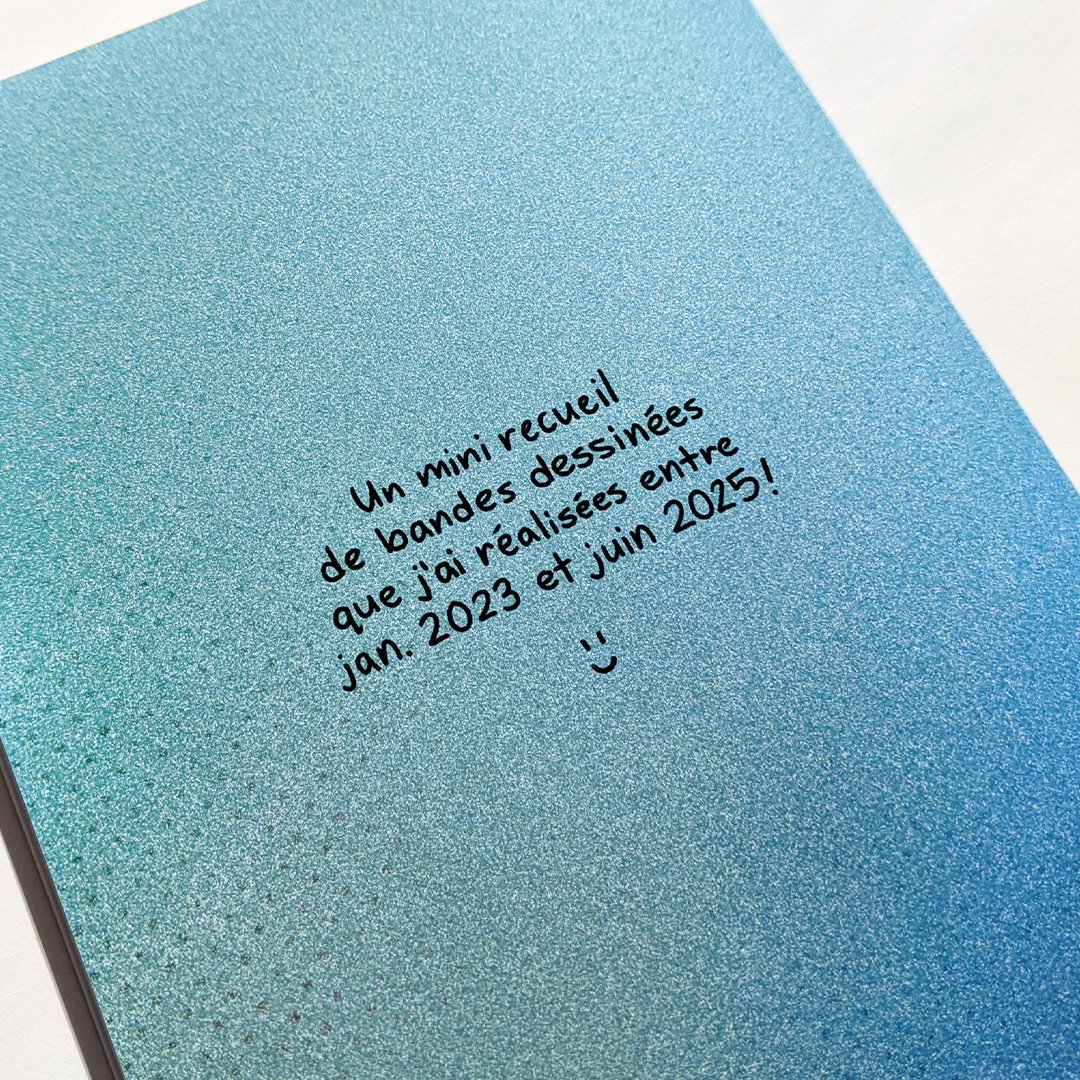 Un mini recueil
de bandes dessinées
que j'ai réalisées entre
jan. 2023 et juin 2025!